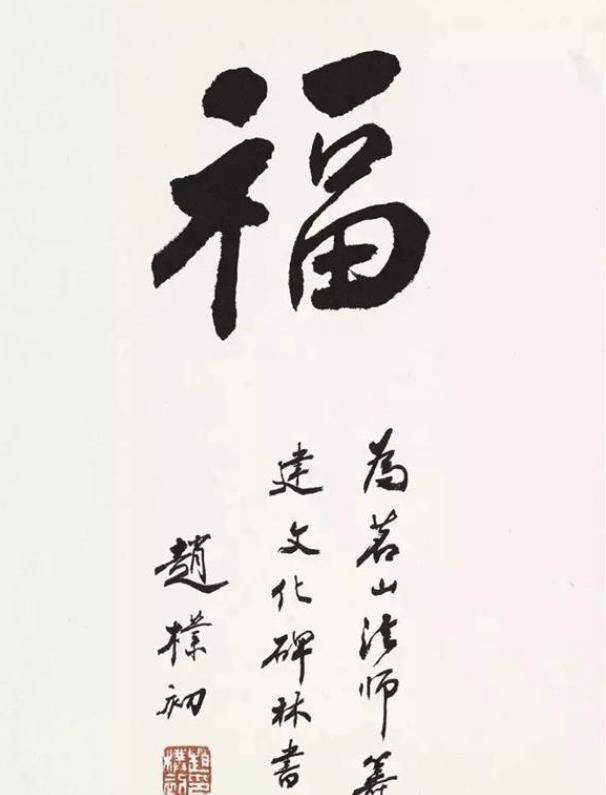 福
為茗山法师
建文化碑林書
趙樸初